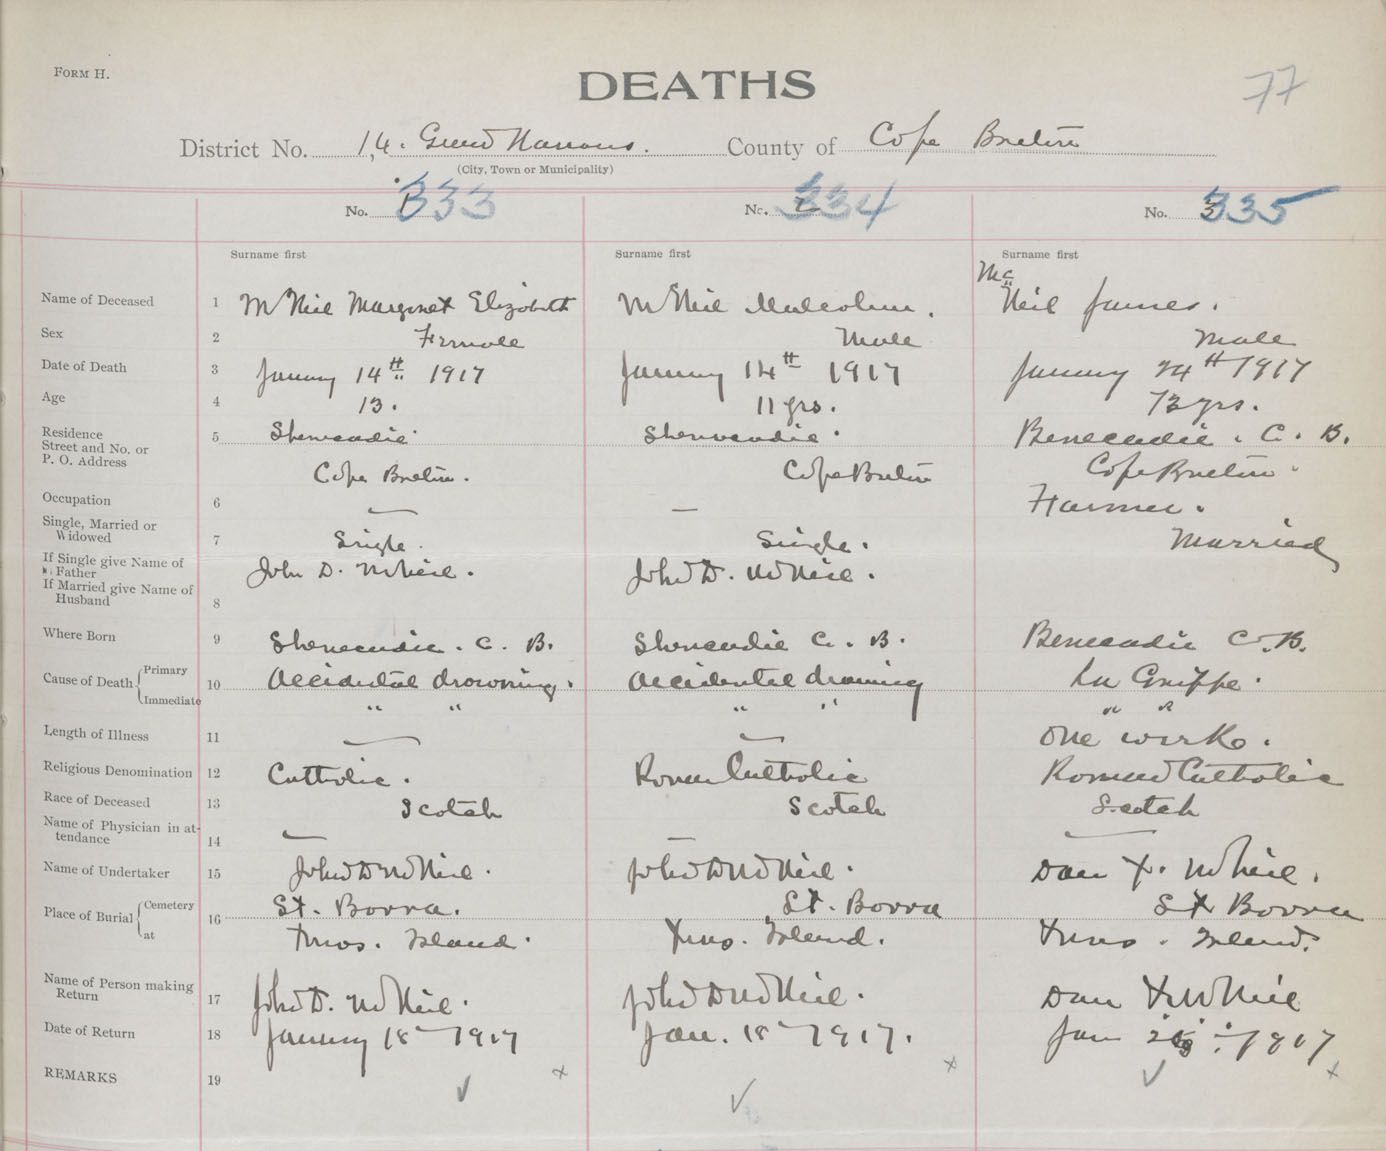 FORM H.
DEATHS
77
District No. 14. Grand Narrows. County of Cape Breton
(City, Town or Municipality)
No. 1 333 No. 2 334 No. 3 335
Surname first Surname first Surname first
Name of Deceased 1 McNeil Margaret Elizabeth McNeil Malcolm. McNeil James.
Sex 2 Female Male Male
Date of Death 3 January 14th 1917 January 14th 1917 January 24th 1917
Age 4 13. 11 yrs. 73 yrs.
Residence
Street and No. or
P. O. Address 5 Shenacadie Shenacadie. Benecadie. C. B.
Cape Breton. Cape Breton Cape Breton.
Occupation 6 — — Farmer.
Single, Married or
Widowed 7 Single. Single. Married
If Single give Name of
Father John D. McNeil. John D. McNeil.
If Married give Name of
Husband 8
Where Born 9 Shenacadie. C. B. Shenacadie C. B. Benecadie C. B.
Cause of Death Primary
Immediate 10 Accidental drowning. Accidental drowning La Grippe.
" " " " " "
Length of Illness 11 — — One week.
Religious Denomination 12 Catholic. Roman Catholic Roman Catholic
Race of Deceased 13 Scotch Scotch Scotch
Name of Physician in at-
tendance 14 — — —
Name of Undertaker 15 John D McNeil. John D McNeil. Dan X. McNeil.
Place of Burial Cemetery
at 16 St. Barra. St. Barra St Barra
Xmas. Island. Xmas. Island. Xmas. Island.
Name of Person making
Return 17 John D. McNeil. John D McNeil. Dan X McNeil
Date of Return 18 January 18 1917 Jan. 18 1917. Jan 1917
REMARKS 19